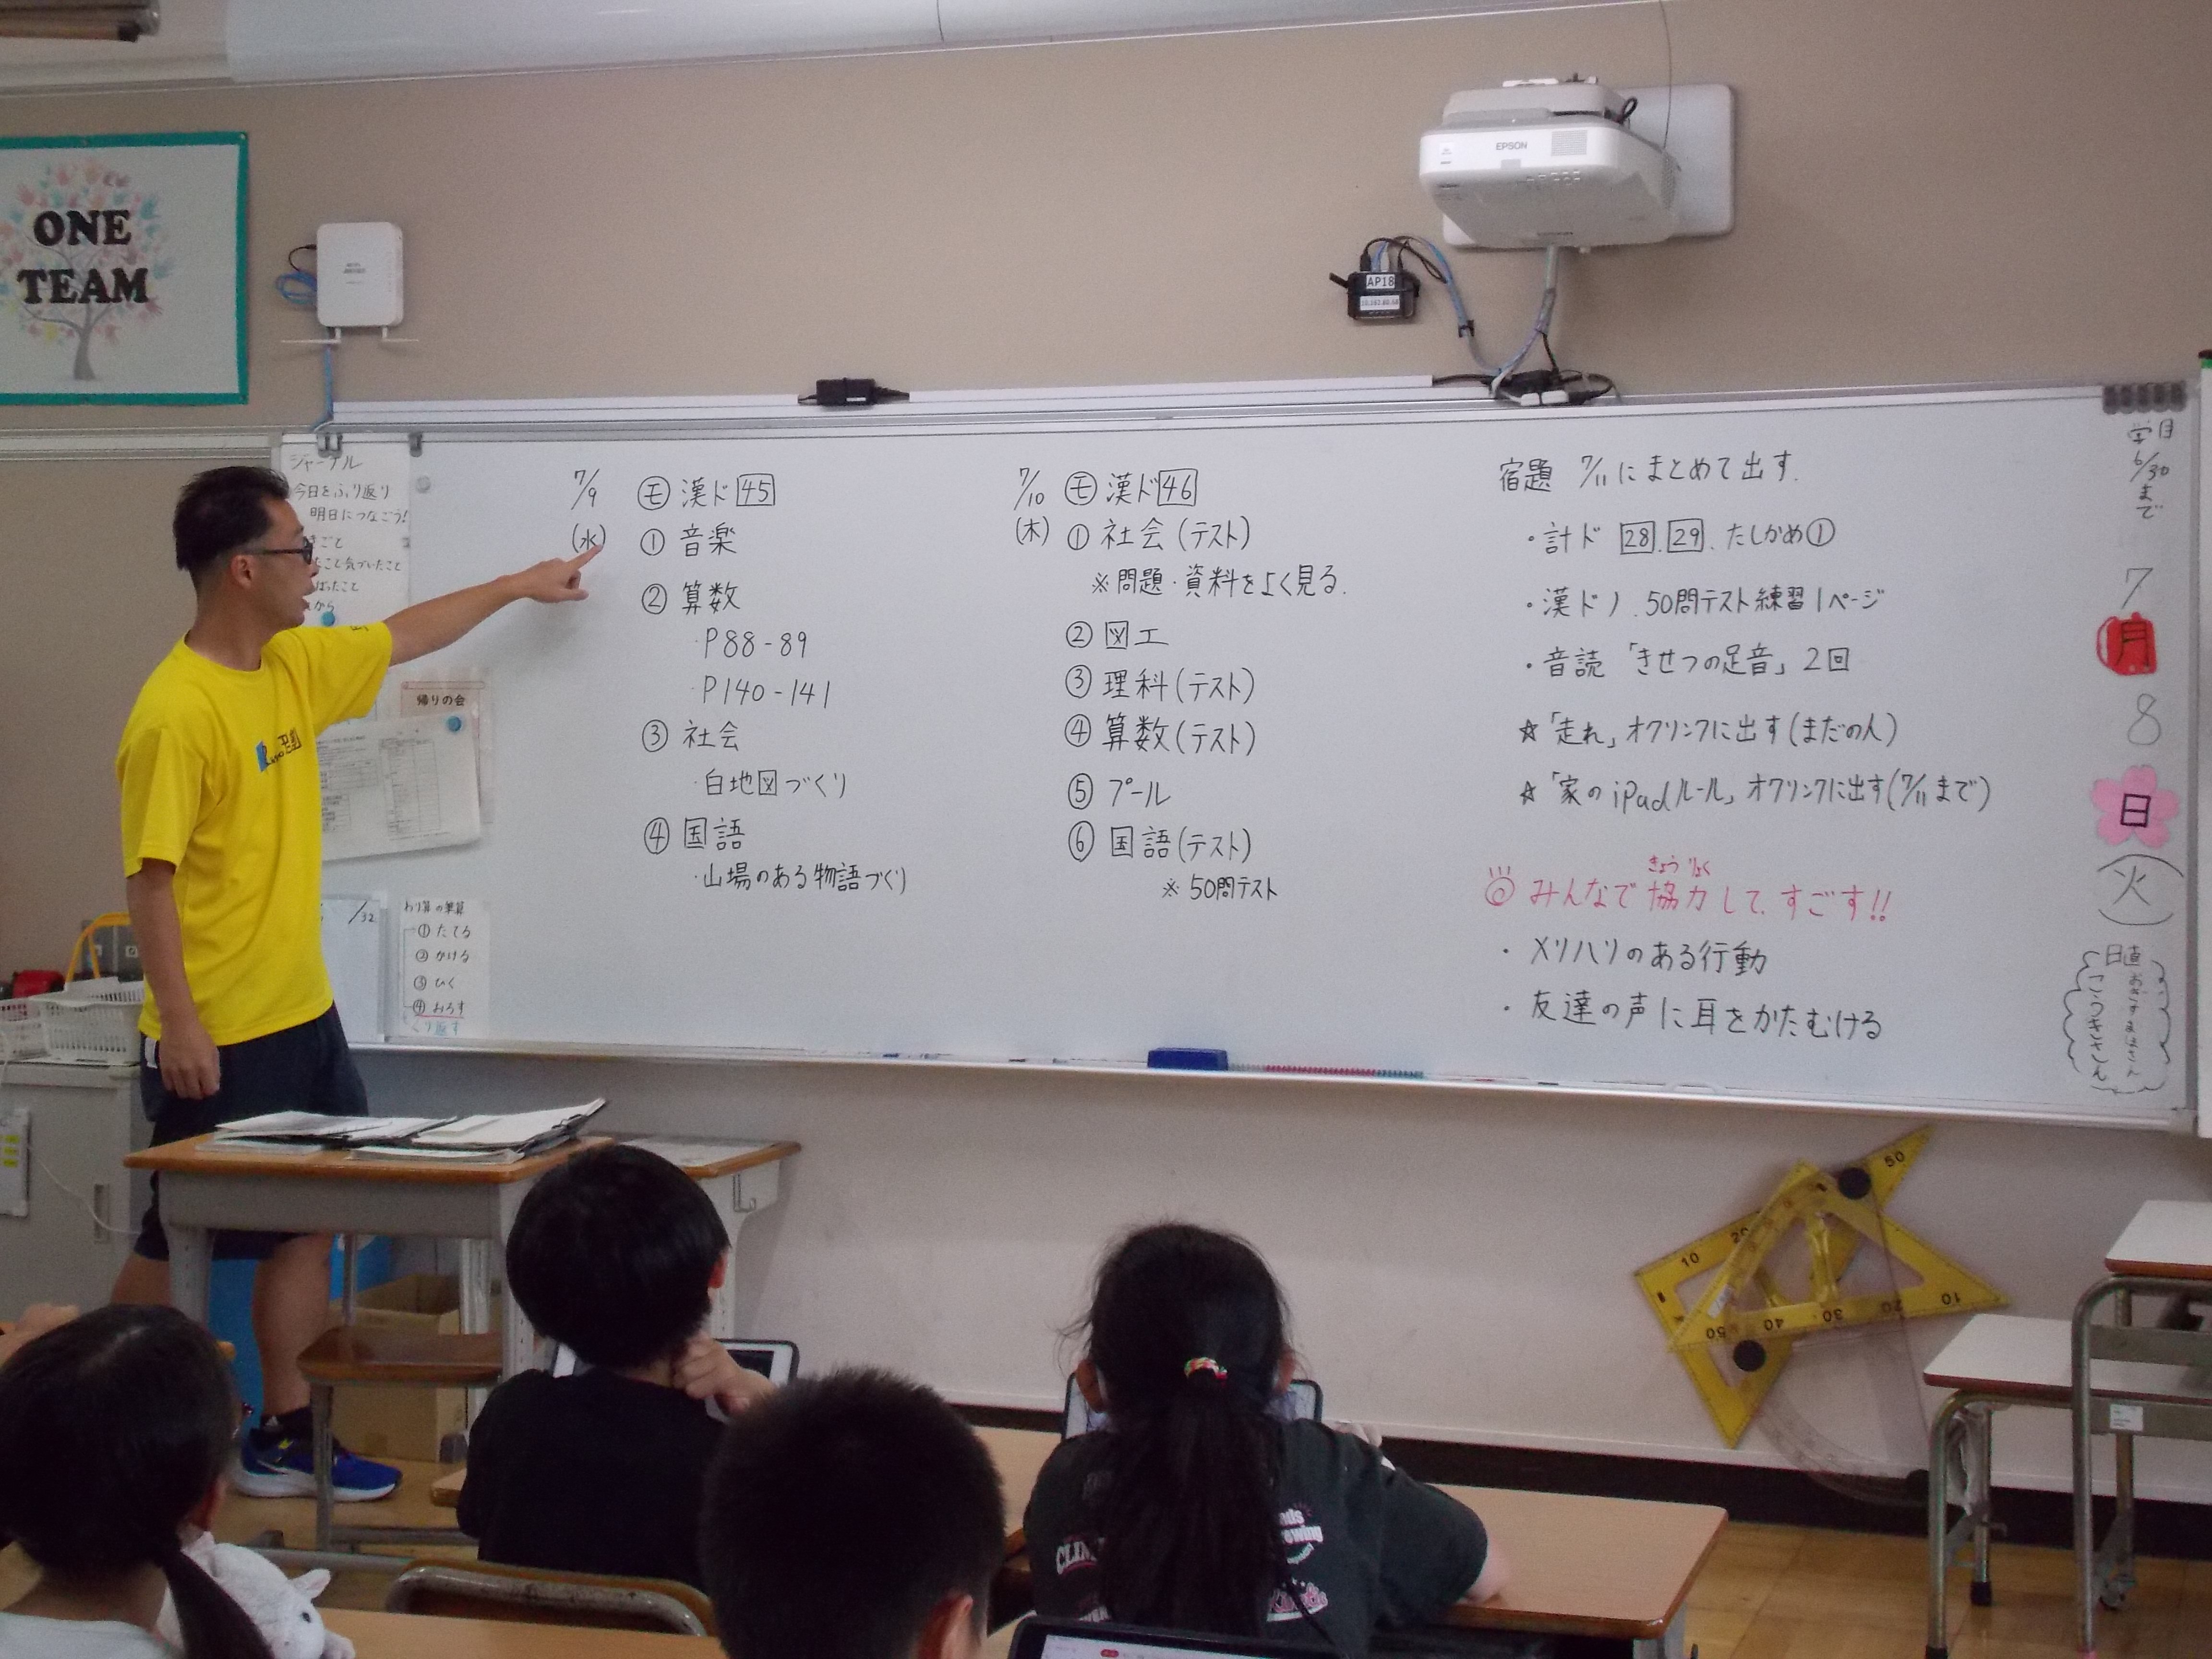 ONE
TEAM
EPSON
AP18
ジャーナル
今日をふり返り
明日につなごう!
帰りの会
/32
わり算の筆算
① たてる
② かける
③ ひく
④ おろす
くり返す
7/9
(水)
モ 漢ド 45
① 音楽
② 算数
・P88-89
・P140-141
③ 社会
・白地図づくり
④ 国語
・山場のある物語づくり
7/10
(木)
モ 漢ド 46
① 社会(テスト)
※問題・資料をよく見る.
② 図工
③ 理科(テスト)
④ 算数(テスト)
⑤ プール
⑥ 国語(テスト)
※ 50問テスト
宿題 7/11にまとめて出す.
・計ド 28. 29. たしかめ①
・漢ドノ. 50問テスト練習1ページ
・音読「きせつの足音」2回
☆「走れ」オクリンクに出す(まだの人)
☆「家のiPadルール」オクリンクに出す(7/11まで)
きょうりょく
◎ みんなで協力して、すごす!!
・メリハリのある行動
・友達の声に耳をかたむける
6/30
まで
7
月
8
日
火
日直
こうきさん
50
10
20
10
20
30
40
50